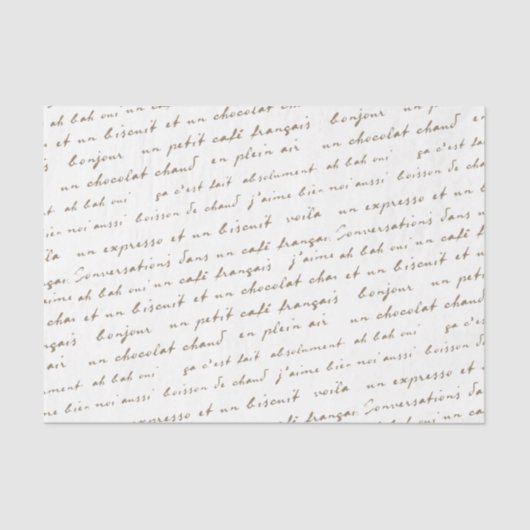 ah bah oui un ca
et un biscuit et un chocolat chau
bonjour un petit café français bonjour un petit
un chocolat chaud en plein air un chocolat chaud en
ah bah oui ça c'est fait absolument ah bah oui ça c'est
bien noi aussi boisson de chaud j'aime bien noi aussi boisson
un expresso et un biscuit voila un expresso et un bis
Conversations dans un café françai Conversations dans un
j'aime ah bah oui un café français j'aime ah bah oui un café fr
cha et un biscuit et un chocolat cha et un biscuit et un
nçais bonjour un petit café français bonjour un petit c
air un chocolat chaud en plein air un chocolat chaud
ument ah bah oui ça c'est fait absolument ah bah oui ça
me bien noi aussi boisson de chaud j'aime bien noi aussi boisson de c
un expresso et un biscuit voila un expresso et un b
un café françai Conversations dans
ah bah oui un ca